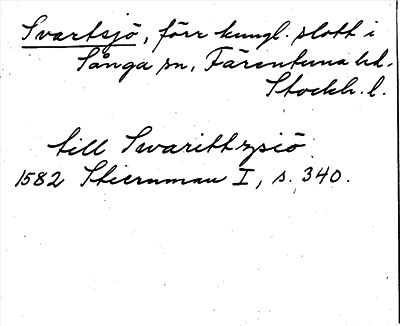 Svartsjö, förr kungl. slott i
Sånga sn, Färentuna hd.
Stockh. l.
till Swarittzsiö
1582 Stiernman I, s. 340.